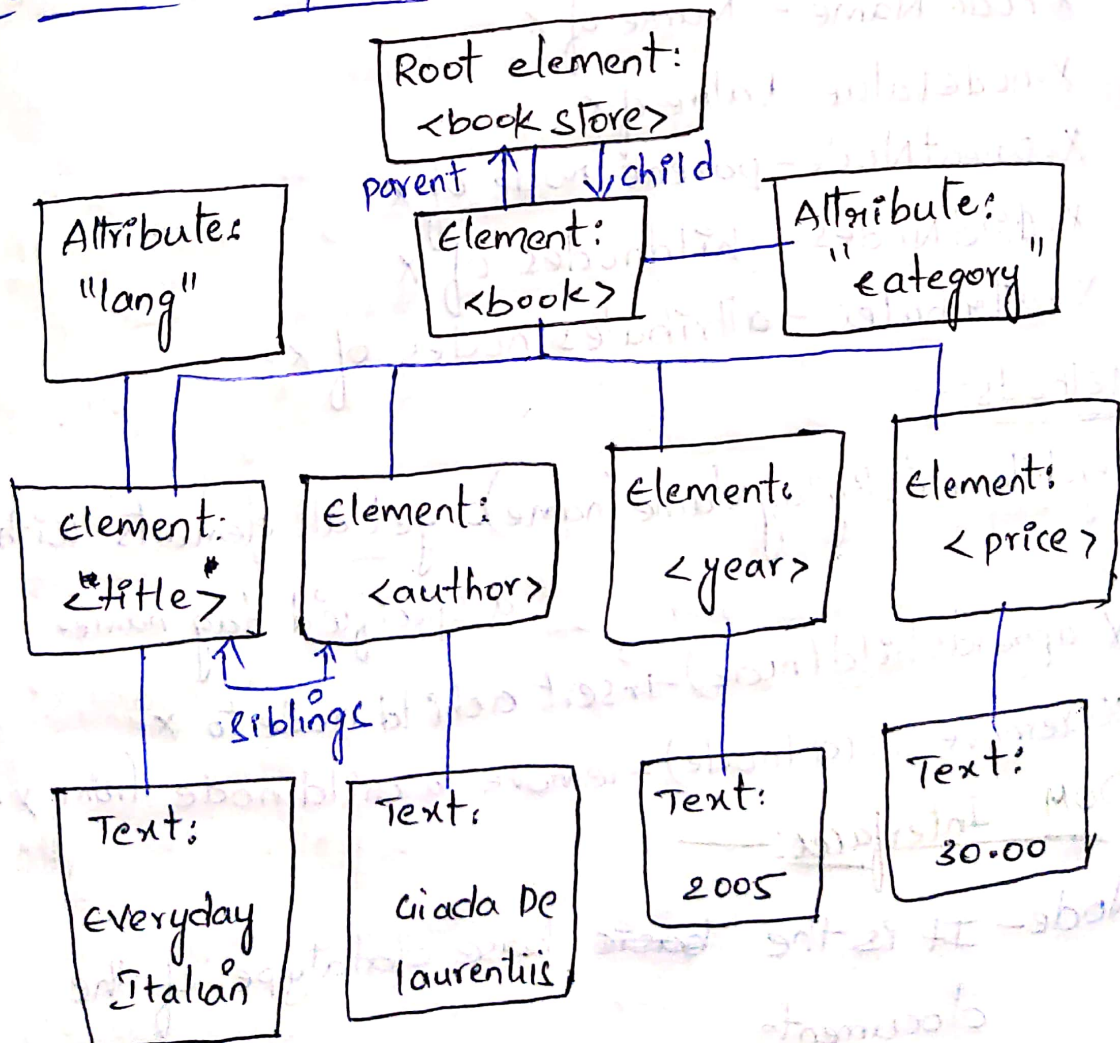 Root element:
<book store>
parent
child
Attribute:
"lang"
Element:
<book>
Attribute:
"category"
Element:
"<title>"
Element:
<author>
Element:
<year>
Element:
<price>
siblings
Text:
Everyday
Italian
Text:
Giada De
laurentiis
Text:
2005
Text:
30.00